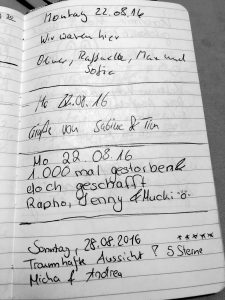 Montag 22.08.16
Wir waren hier
Oliver, Raffaella, Max und
Sofia
Mo 22.08.16
Grüße von Sabine & Tim
Mo 22.08.16
1.000 mal gestorben &
doch geschafft
Rapho, Jenny & Muchi ö
Sonntag, 28.08.2016
Traumhafte Aussicht ? 5 Sterne
Micha & Andrea